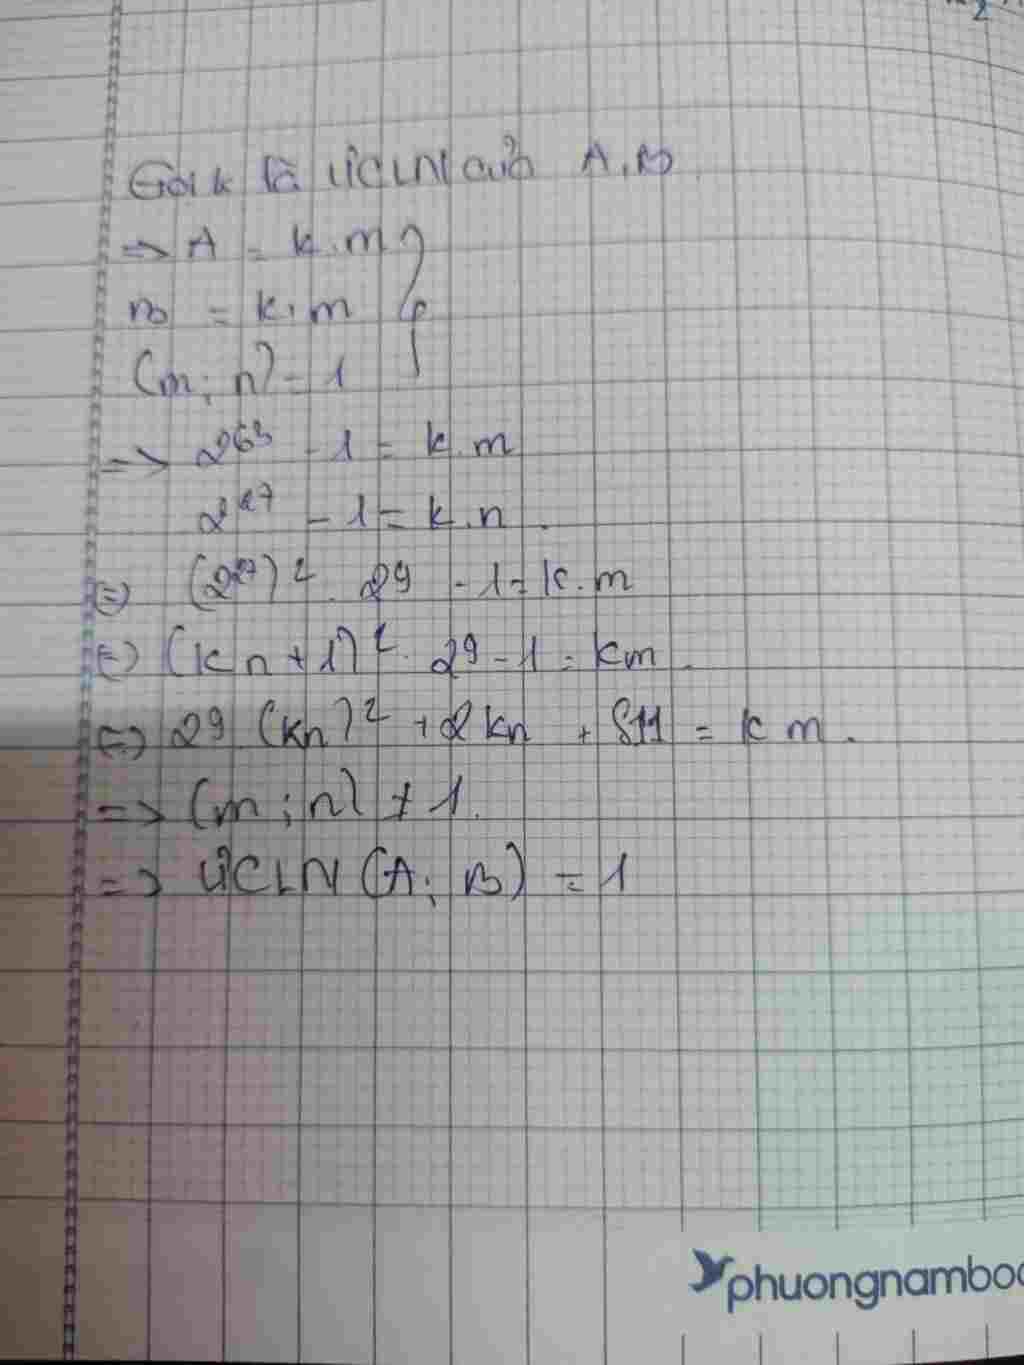 Gọi k là ƯCLN của A, B
=> A = k.m
B = k.m
(m; n) = 1
=> 2^63 - 1 = k.m
2^27 - 1 = k.n.
(=) (2^27)^2 . 29 - 1 = k.m
(=) (kn + 1)^2 . 29 - 1 = km.
(=) 29 (kn)^2 + 2kn + 511 = km.
=> (m; n) ≠ 1.
=> ƯCLN (A; B) = 1
phuongnamboo